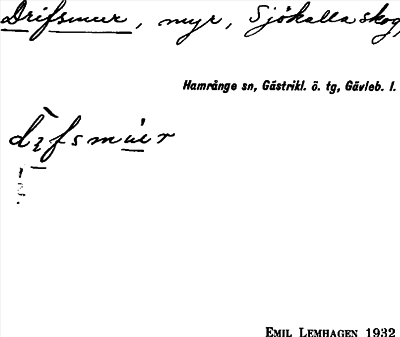 Drifsmur, myr, Sjökalla skog,
Hamrånge sn, Gästrikl. ö. tg, Gävleb. l.
EMIL LEMHAGEN 1932